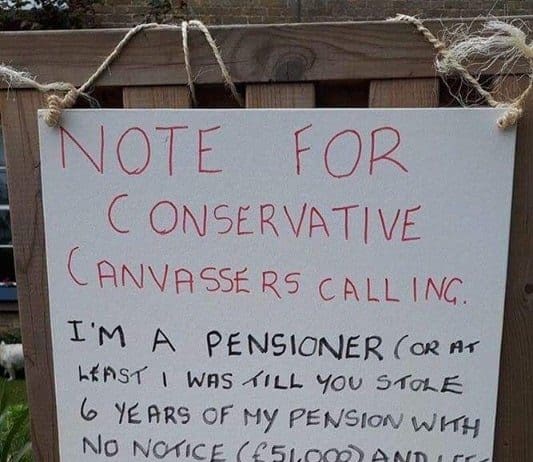 NOTE FOR
CONSERVATIVE
CANVASSERS CALLING.
I'M A PENSIONER (OR AT
LEAST I WAS TILL YOU STOLE
6 YEARS OF MY PENSION WITH
NO NOTICE (£51,000) AND